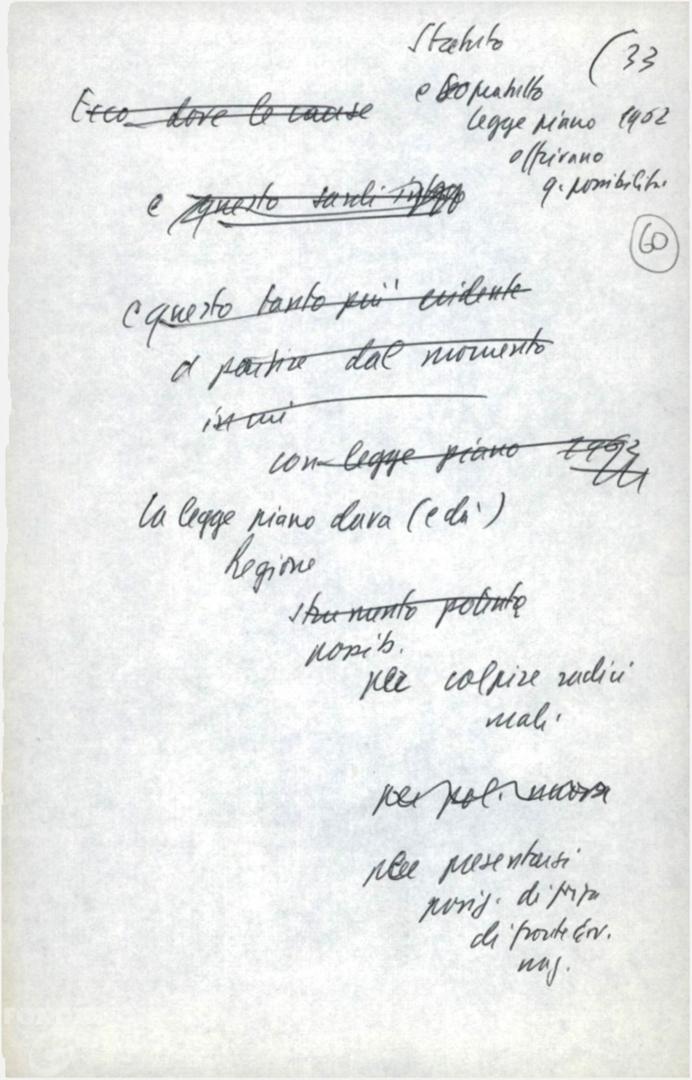 Statuto
(33
e soprattutto
legge piano 1962
offrivano
g. possibilità.
60
Ecco dove le cause
e questo sardi
e questo tanto più evidente
a partire dal momento
in cui
con legge piano 1962
La legge piano dava (e dà)
Regione
strumento potente
possib.
per colpire radici
mali.
per pol. nuova
per presentarsi
posiz. di forza
di fronte Gov.
naz.